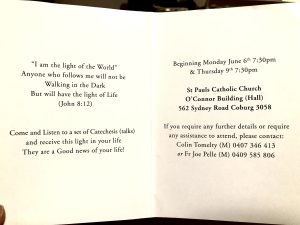 "I am the light of the World"
Anyone who follows me will not be
Walking in the Dark
But will have the light of Life
(John 8:12)
Come and Listen to a set of Catechesis (talks)
and receive this light in your life
They are a Good news of your life!
Beginning Monday June 6th 7:30pm
& Thursday 9th 7:30pm
St Pauls Catholic Church
O'Connor Building (Hall)
562 Sydney Road Coburg 3058
If you require any further details or require
any assistance to attend, please contact:
Colin Tomelty (M) 0407 346 413
or Fr Joe Pelle (M) 0409 585 806